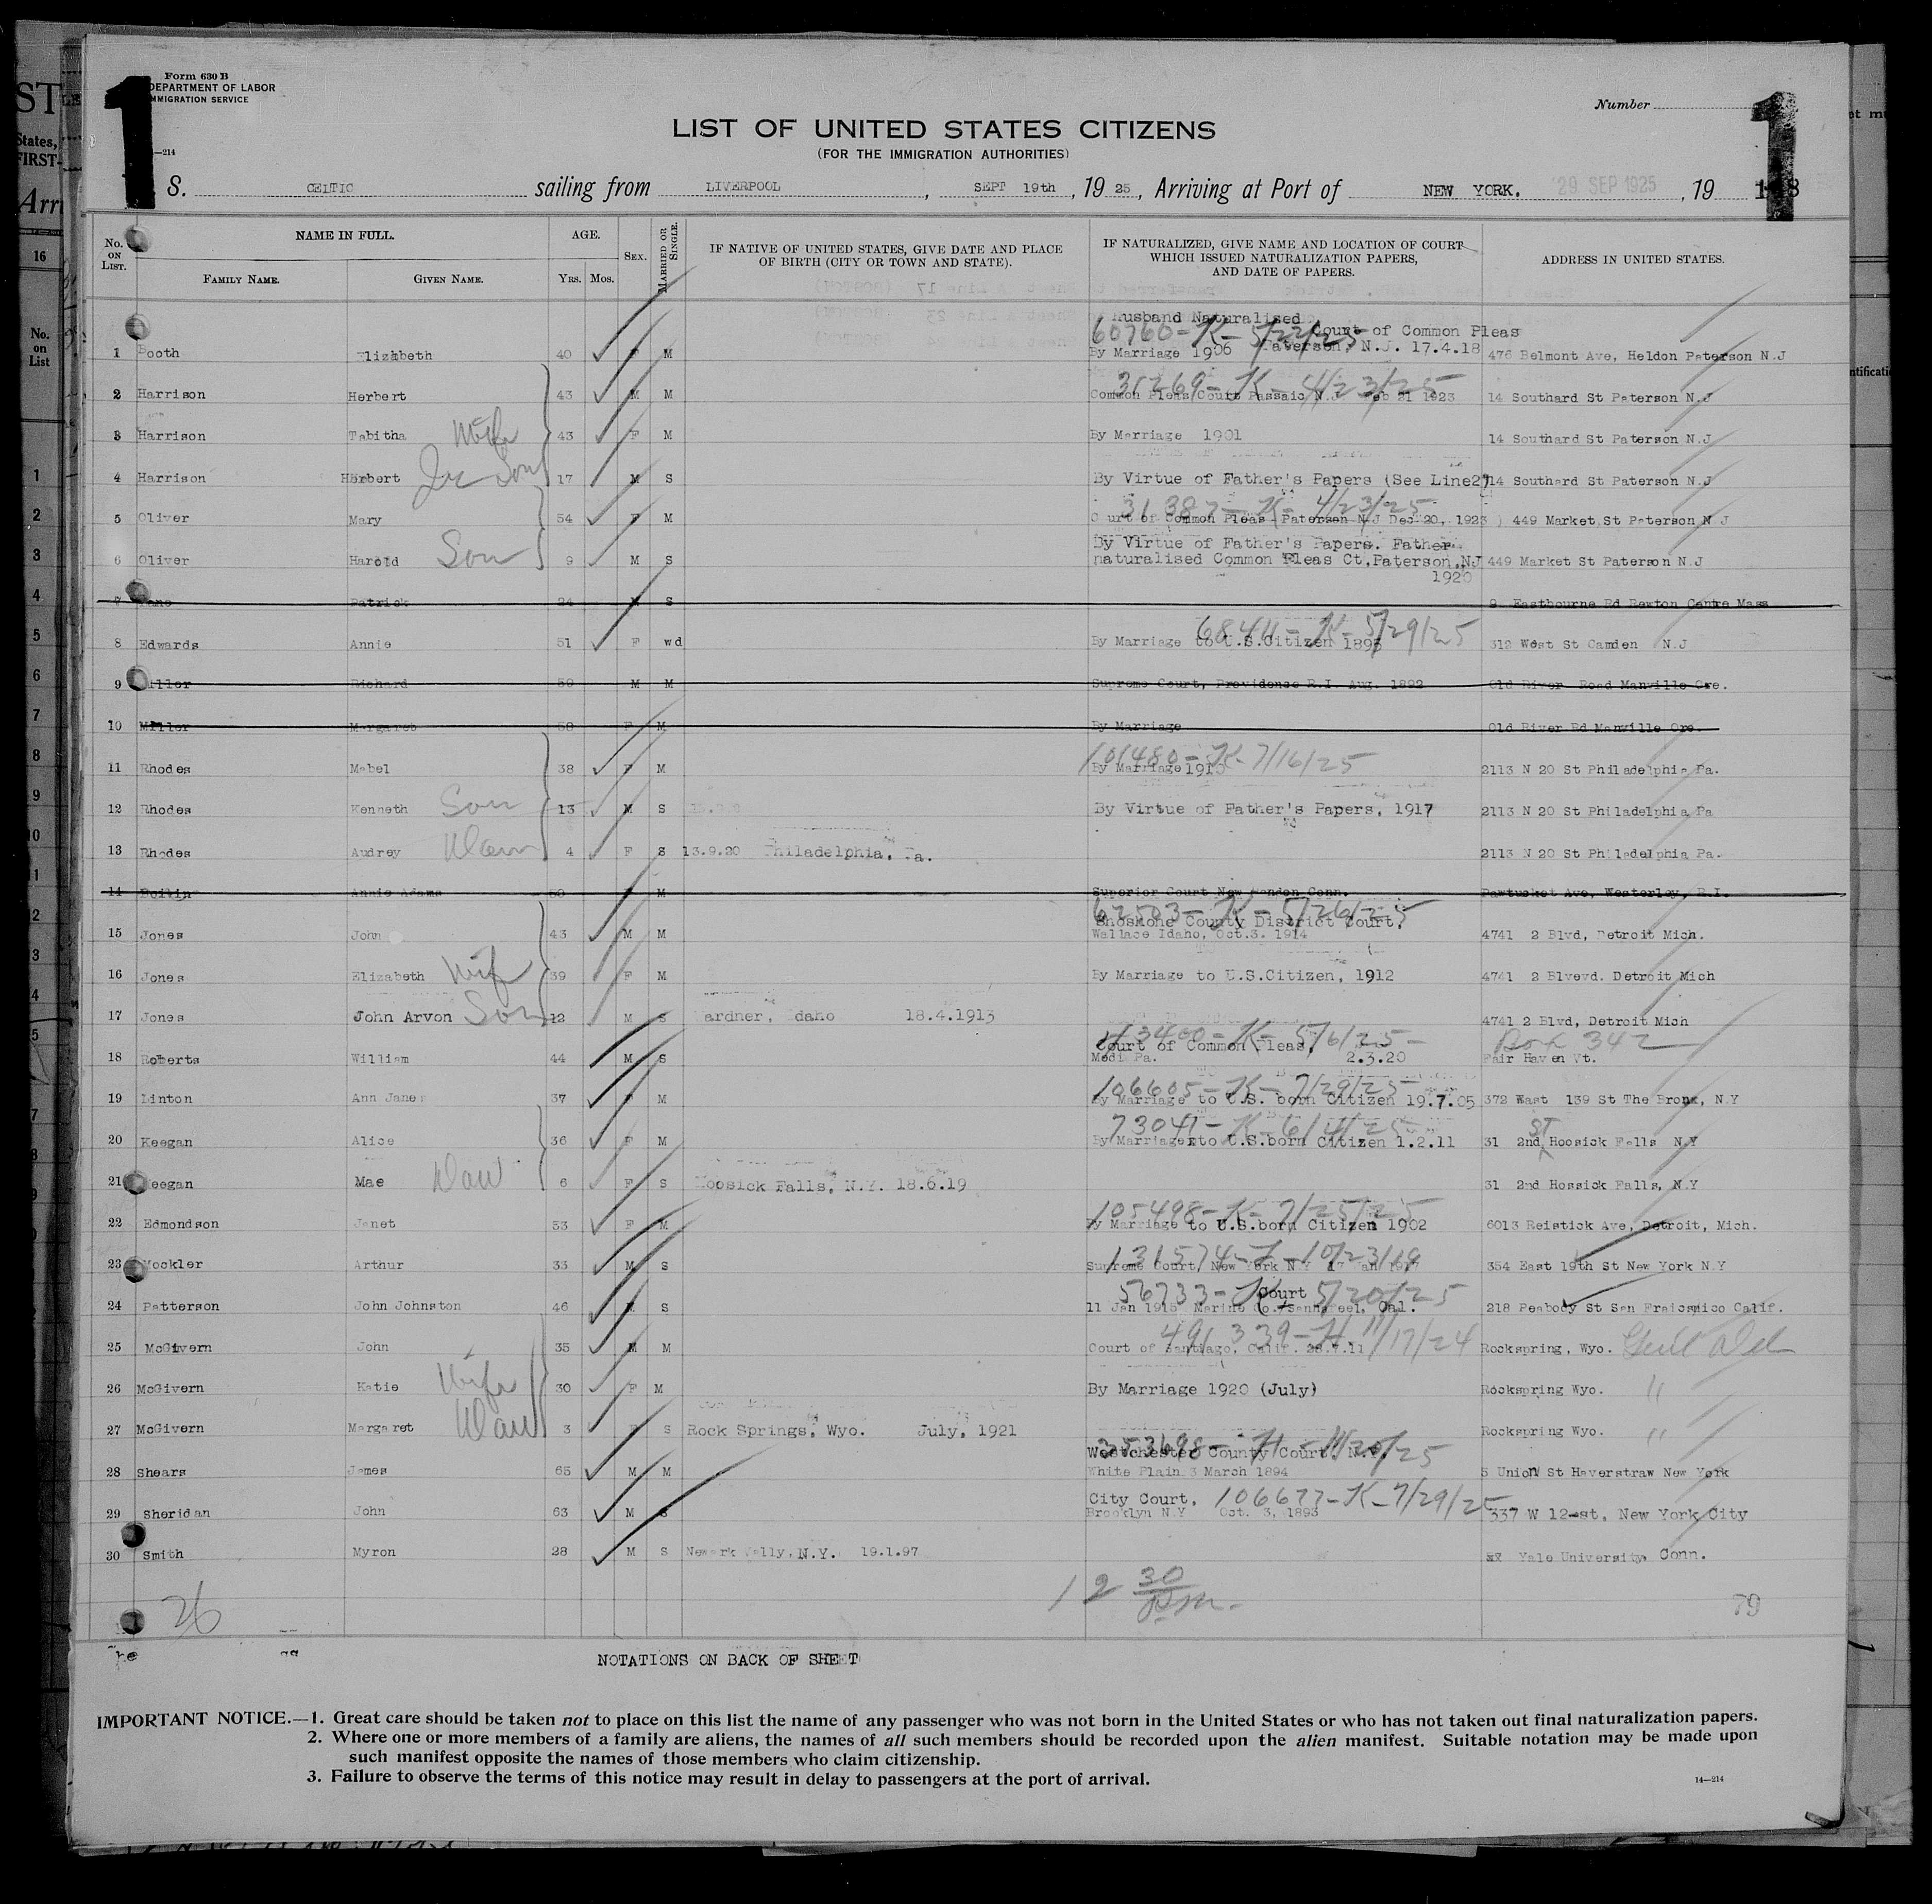 Form 630 B
DEPARTMENT OF LABOR
IMMIGRATION SERVICE
Number
1
1
LIST OF UNITED STATES CITIZENS
(FOR THE IMMIGRATION AUTHORITIES)
S. CELTIC sailing from LIVERPOOL, SEPT 19th, 19 25, Arriving at Port of NEW YORK. 29 SEP 1925, 19
No. ON LIST. NAME IN FULL. AGE. SEX. MARRIED OR SINGLE. IF NATIVE OF UNITED STATES, GIVE DATE AND PLACE OF BIRTH (CITY OR TOWN AND STATE). IF NATURALIZED, GIVE NAME AND LOCATION OF COURT WHICH ISSUED NATURALIZATION PAPERS, AND DATE OF PAPERS. ADDRESS IN UNITED STATES.
FAMILY NAME. GIVEN NAME. YRS. MOS.
Husband Naturalised
60760-K-5/22/25 Court of Common Pleas
1 Booth Elizabeth 40 F M By Marriage 1906 Paterson, N.J. 17.4.18 476 Belmont Ave, Heldon Paterson N.J
31269-K-4/23/25
2 Harrison Herbert 43 M M Common Pleas Court Passaic N.J. Feb 21 1923 14 Southard St Paterson N.J
3 Harrison Tabitha Wife 43 F M By Marriage 1901 14 Southard St Paterson N.J
4 Harrison Herbert Jr Son 17 M S By Virtue of Father's Papers (See Line2) 14 Southard St Paterson N.J
31387-K-4/23/25
5 Oliver Mary 54 F M Court of Common Pleas Paterson N J Dec 20, 1923 449 Market St Paterson N J
By Virtue of Father's Papers. Father
6 Oliver Harold Son 9 M S naturalised Common Pleas Ct, Paterson, NJ 449 Market St Paterson N.J
1920
7 Patrick 24 M S 9 Eastbourne Rd Newton Centre Mass
68411-K-5/29/25
8 Edwards Annie 51 F wd By Marriage to U.S.Citizen 1893 312 West St Camden N.J
9 Miller Richard 59 M M Supreme Court, Providence R.I. Aug. 1892 Old River Road Manville Ore.
10 Miller Margaret 58 F M By Marriage Old River Rd Manville Ore.
101480-K-7/16/25
11 Rhodes Mabel 38 F M By Marriage 1910 2113 N 20 St Philadelphia Pa.
12 Rhodes Kenneth Son 13 M S By Virtue of Father's Papers, 1917 2113 N 20 St Philadelphia Pa
13 Rhodes Audrey Dau 4 F S 13.9.20 Philadelphia, Pa. 2113 N 20 St Philadelphia Pa.
14 Annie Adams 50 F M Superior Court New Conn. Pawtucket Ave, Westerley, R.I.
62503-K-5/26/25
Shoskone County District Court,
15 Jones John 43 M M Wallace Idaho, Oct.3. 1914 4741 2 Blvd, Detroit Mich.
16 Jones Elizabeth Wife 39 F M By Marriage to U.S.Citizen, 1912 4741 2 Blvevd. Detroit Mich
17 Jones John Arvon Son 12 M S Wardner, Idaho 18.4.1913 4741 2 Blvd, Detroit Mich
Court of Common Pleas, 5/6/25 Box 342
18 Roberts William 44 M S Medi Pa. 2.3.20 Fair Haven Vt.
106605-K-7/29/25
19 Linton Ann Jane 37 F M By Marriage to U.S. born Citizen 19.7.05 372 East 139 St The Bronx, N.Y
73041-K-6/4/25 ST
20 Keegan Alice 36 F M By Marriage to U.S.born Citizen 1.2.11 31 2nd Hoosick Falls N.Y
21 Keegan Mae Dau 6 F S Hoosick Falls, N.Y. 18.6.19 31 2nd Hossick Falls, N.Y
105498-K-7/25/25
22 Edmondson Janet 53 F M By Marriage to U.S.born Citizen 1902 6013 Reistick Ave, Detroit, Mich.
131574-F-10/23/19
23 Mockler Arthur 33 M S Supreme Court, New York N Y 17 Jan 1917 354 East 19th St New York N.Y
56733-K 5/20/25 Court
24 Patterson John Johnston 46 M S 11 Jan 1915 Marine Co. Cal. 218 Peabody St San Fraicsmico Calif.
491339-H 11/17/24
25 McGivern John 35 M M Court of Santiago, Calif. 28.7.11 Rockspring, Wyo.
26 McGivern Katie Wife 30 F M By Marriage 1920 (July) Rockspring Wyo. "
27 McGivern Margaret Dau 3 F S Rock Springs, Wyo. July, 1921 Rockspring Wyo. "
Westchester County Court. N.Y.
28 Shears James 65 M M White Plain 3 March 1894 5 Union St Haverstraw New York
City Court, 106677-K-7/29/25
29 Sheridan John 63 M S Brooklyn N.Y Oct. 3, 1893 337 W 12-st, New York City
30 Smith Myron 28 M S Newark Vally, N.Y. 19.1.97 Yale University Conn.
26
12 30 P.m.
79
NOTATIONS ON BACK OF SHEET
IMPORTANT NOTICE.—1. Great care should be taken not to place on this list the name of any passenger who was not born in the United States or who has not taken out final naturalization papers.
2. Where one or more members of a family are aliens, the names of all such members should be recorded upon the alien manifest. Suitable notation may be made upon
such manifest opposite the names of those members who claim citizenship.
3. Failure to observe the terms of this notice may result in delay to passengers at the port of arrival.
14—214